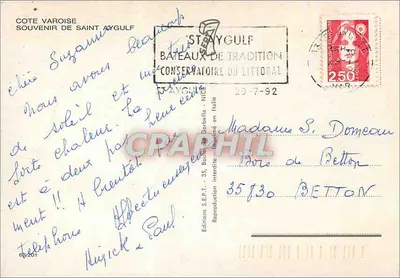 COTE VAROISE
SOUVENIR DE SAINT AYGULF
ST AYGULF
BATEAUX DE TRADITION
CONSERVATOIRE DU LITTORAL
ST AYGULF 29-7-92
2,50
chère Suzanne
Nous avons beaucoup
de soleil et
forte chaleur. La
est à deux pas heureuse
ment!! A bientôt par
telephone Affectueusement
Paul.
Madame S. Domeau
Bois de Betton
35830 BETTON
Editions S.E.P.T. - 35,
Reproduction interdite
CPAPHIL